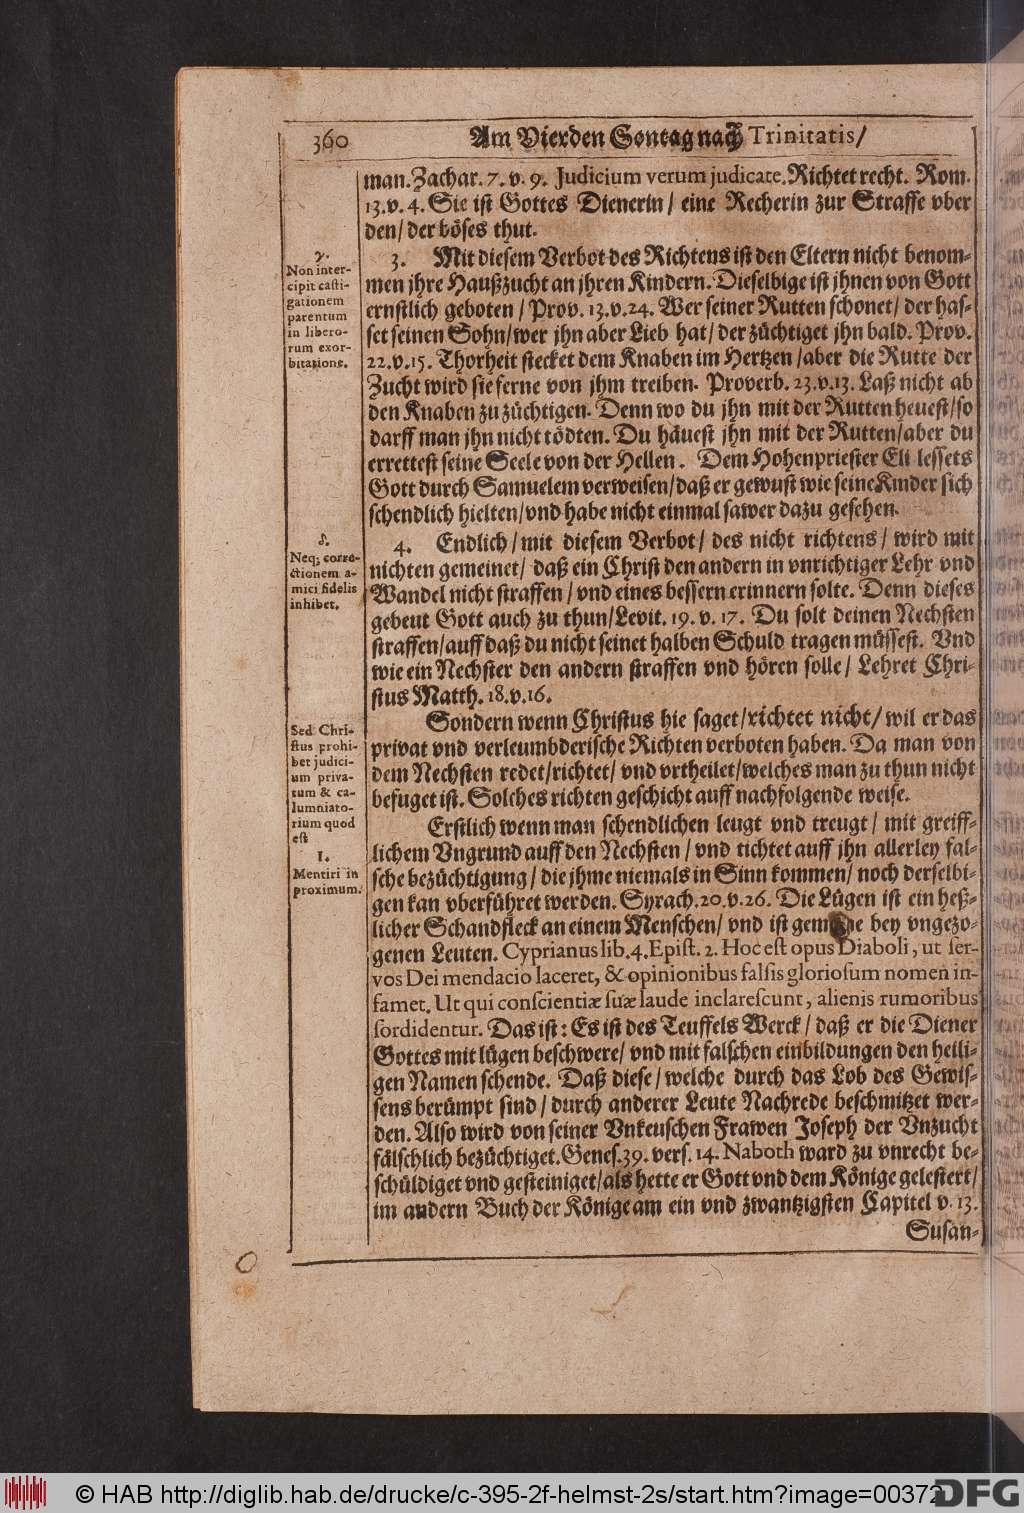 360
Am Vierden Sontag nach Trinitatis/
man. Zachar. 7. v. 9. Judicium verum judicate. Richtet recht. Rom.
13. v. 4. Sie ist Gottes Dienerin / eine Recherin zur Straffe vber
den / der böses thut.
γ.
Non inter-
cipit casti-
gationem
parentum
in libero-
rum exor-
bitations.
3. Mit diesem Verbot des Richtens ist den Eltern nicht benom-
men jhre Haußzucht an jhren Kindern. Dieselbige ist jhnen von Gott
ernstlich geboten / Prov. 13. v. 24. Wer seiner Rutten schonet / der has-
set seinen Sohn / wer jhn aber Lieb hat / der züchtiget jhn bald. Prov.
22. v. 15. Thorheit stecket dem Knaben im Hertzen / aber die Rutte der
Zucht wird sie ferne von jhm treiben. Proverb. 23. v. 13. Laß nicht ab
den Knaben zu züchtigen. Denn wo du jhn mit der Rutten heuest / so
darff man jhn nicht tödten. Du häuest jhn mit der Rutten / aber du
errettest seine Seele von der Hellen. Dem Hohenpriester Eli lessets
Gott durch Samuelem verweisen / daß er gewust wie seine Kinder sich
schendlich hielten / vnd habe nicht einmal sawer dazu gesehen.
δ.
Neq; corre-
ctionem a-
mici fidelis
inhibet.
4. Endlich / mit diesem Verbot / des nicht richtens / wird mit
nichten gemeinet / daß ein Christ den andern in vnrichtiger Lehr vnd
Wandel nicht straffen / vnd eines bessern erinnern solte. Denn dieses
gebeut Gott auch zu thun / Levit. 19. v. 17. Du solt deinen Nechsten
straffen / auff daß du nicht seinet halben Schuld tragen müssest. Vnd
wie ein Nechster den andern straffen vnd hören solle / Lehret Chri-
stus Matth. 18. v. 16.
Sed Chri-
stus prohi-
bet judici-
um priva-
tum & ca-
lumniato-
rium quod
est
Sondern wenn Christus hie saget / richtet nicht / wil er das
privat vnd verleumbderische Richten verboten haben. Da man von
dem Nechsten redet / richtet / vnd vrtheilet / welches man zu thun nicht
befuget ist. Solches richten geschicht auff nachfolgende weise.
1.
Mentiri in
proximum.
Erstlich wenn man schendlichen leugt vnd treugt / mit greiff-
lichem Vngrund auff den Nechsten / vnd tichtet auff jhn allerley fal-
sche bezüchtigung / die jhme niemals in Sinn kommen / noch derselbi-
gen kan vberführet werden. Syrach. 20. v. 26. Die Lügen ist ein heß-
licher Schandfleck an einem Menschen / vnd ist gemeine bey vngezo-
genen Leuten. Cyprianus lib. 4. Epist. 2. Hoc est opus Diaboli, ut ser-
vos Dei mendacio laceret, & opinionibus falsis gloriosum nomen in-
famet. Ut qui conscientiæ suæ laude inclarescunt, alienis rumoribus
sordidentur. Das ist: Es ist des Teuffels Werck / daß er die Diener
Gottes mit lügen beschwere / vnd mit falschen einbildungen den heili-
gen Namen schende. Daß diese / welche durch das Lob des Gewis-
sens berümpt sind / durch anderer Leute Nachrede beschmitzet wer-
den. Also wird von seiner Vnkeuschen Frawen Joseph der Vnzucht
fälschlich bezüchtiget. Genes. 39. vers. 14. Naboth ward zu vnrecht be-
schüldiget vnd gesteiniget / als hette er Gott vnd dem Könige gelestert /
im andern Buch der Könige am ein vnd zwantzigsten Capitel v. 13.
Susan-
© HAB http://diglib.hab.de/drucke/c-395-2f-helmst-2s/start.htm?image=00372
DFG